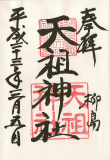 奉拝
柳島
天祖神社
平成二十三年二月五日